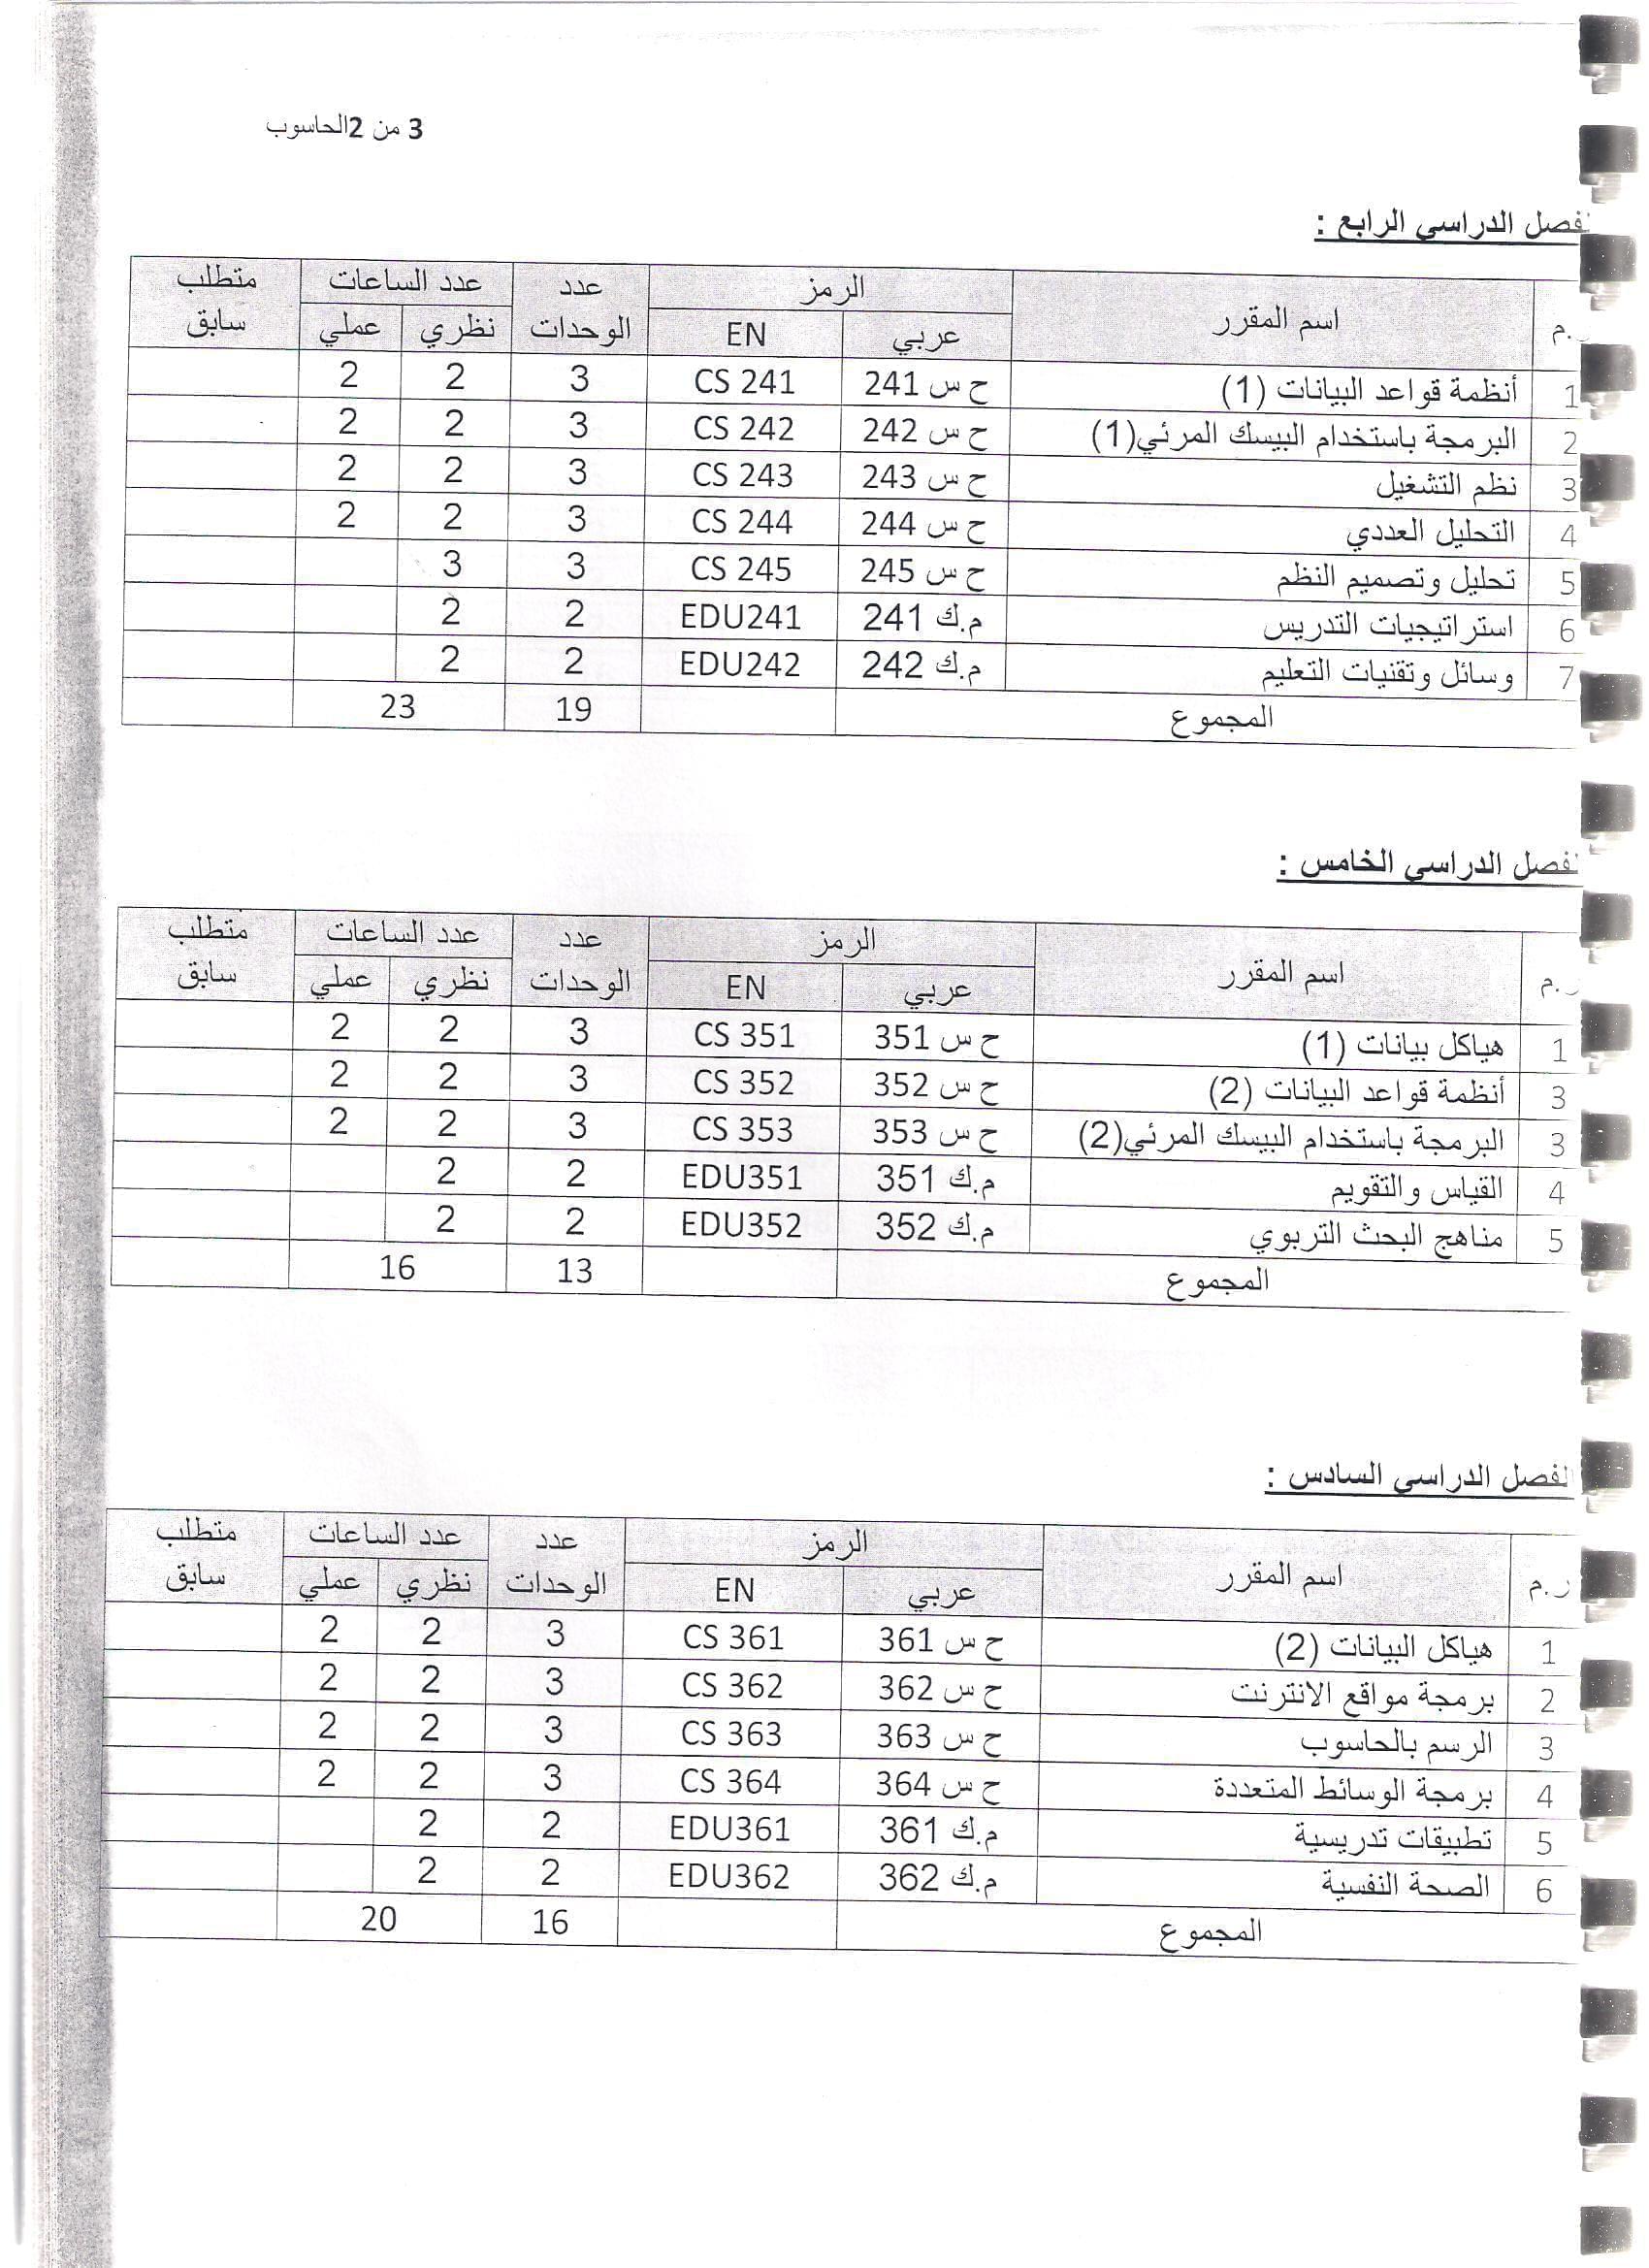 3 من 2الحاسوب
لفصل الدراسي الرابع :
ر.م اسم المقرر الرمز عدد الوحدات عدد الساعات متطلب سابق
عربي EN نظري عملي
1 أنظمة قواعد البيانات (1) ح س 241 CS 241 3 2 2
2 البرمجة باستخدام البيسك المرئي(1) ح س 242 CS 242 3 2 2
3 نظم التشغيل ح س 243 CS 243 3 2 2
4 التحليل العددي ح س 244 CS 244 3 2 2
5 تحليل وتصميم النظم ح س 245 CS 245 3 3
6 استراتيجيات التدريس م.ك 241 EDU241 2 2
7 وسائل وتقنيات التعليم م.ك 242 EDU242 2 2
المجموع 19 23
لفصل الدراسي الخامس :
ر.م اسم المقرر الرمز عدد الوحدات عدد الساعات متطلب سابق
عربي EN نظري عملي
1 هياكل بيانات (1) ح س 351 CS 351 3 2 2
3 أنظمة قواعد البيانات (2) ح س 352 CS 352 3 2 2
3 البرمجة باستخدام البيسك المرئي(2) ح س 353 CS 353 3 2 2
4 القياس والتقويم م.ك 351 EDU351 2 2
5 مناهج البحث التربوي م.ك 352 EDU352 2 2
المجموع 13 16
الفصل الدراسي السادس :
ر.م اسم المقرر الرمز عدد الوحدات عدد الساعات متطلب سابق
عربي EN نظري عملي
1 هياكل البيانات (2) ح س 361 CS 361 3 2 2
2 برمجة مواقع الانترنت ح س 362 CS 362 3 2 2
3 الرسم بالحاسوب ح س 363 CS 363 3 2 2
4 برمجة الوسائط المتعددة ح س 364 CS 364 3 2 2
5 تطبيقات تدريسية م.ك 361 EDU361 2 2
6 الصحة النفسية م.ك 362 EDU362 2 2
المجموع 16 20